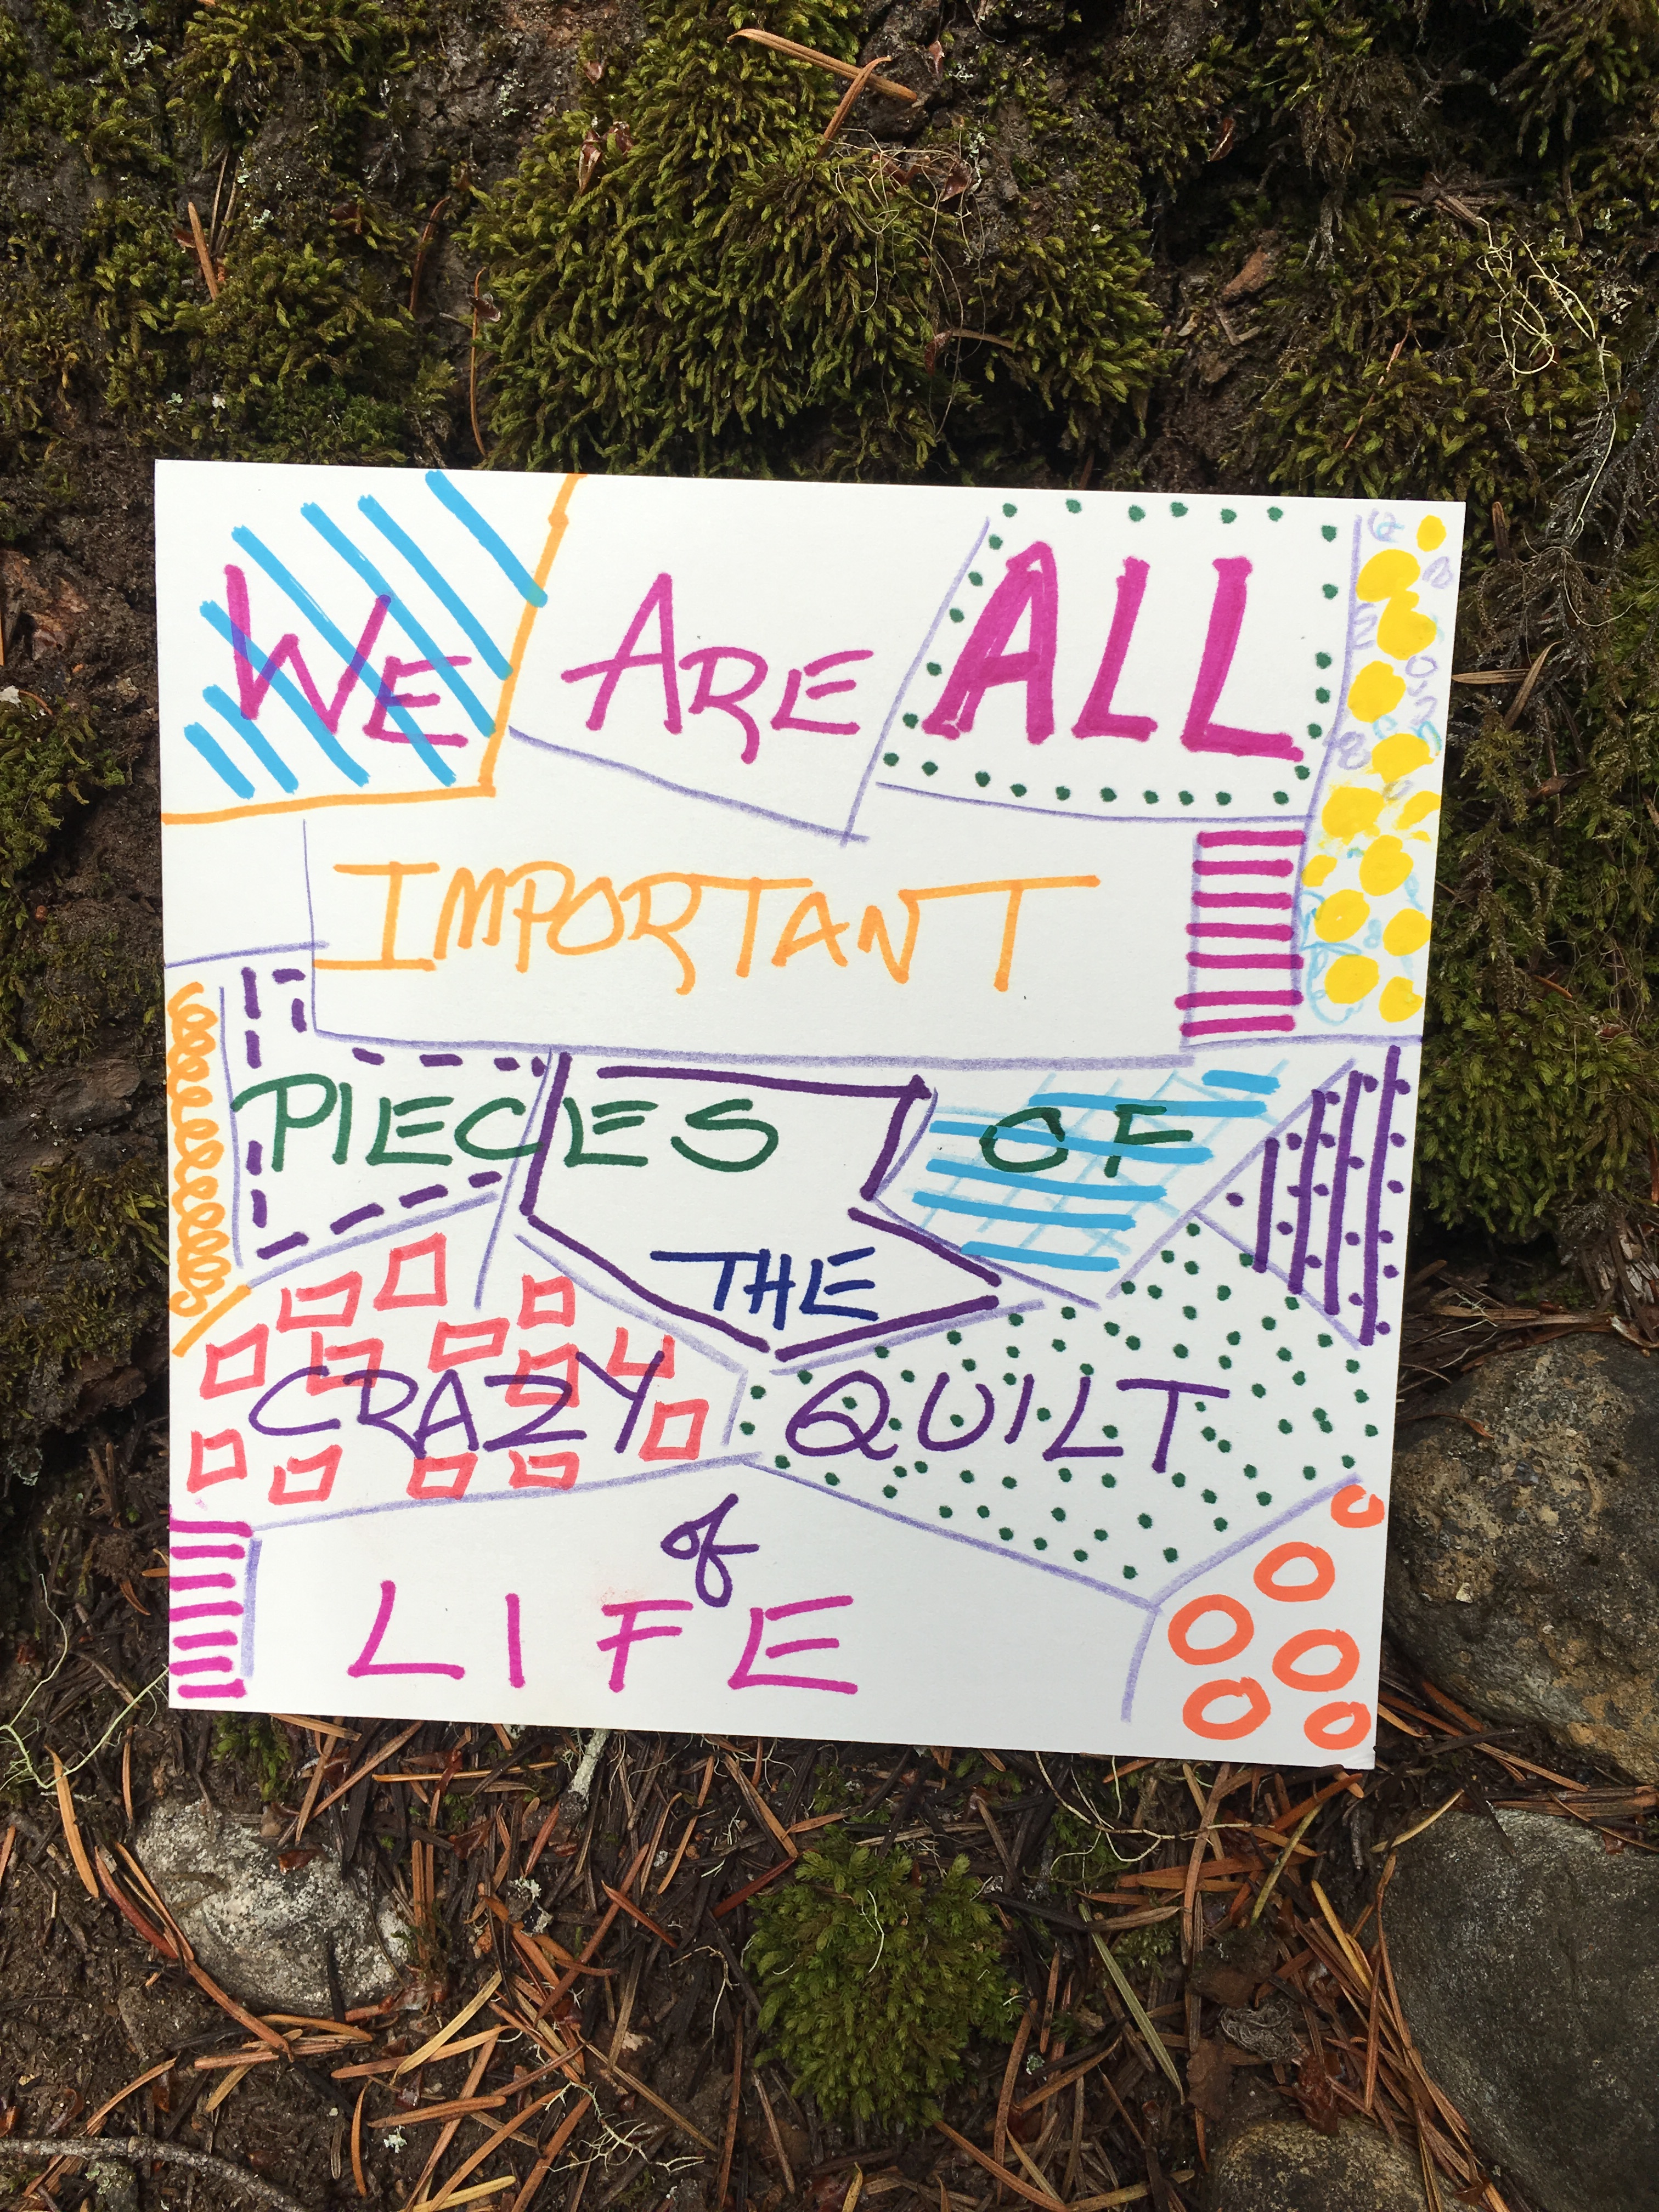 WE ARE ALL
IMPORTANT
PIECES OF
THE
CRAZY QUILT
of
LIFE